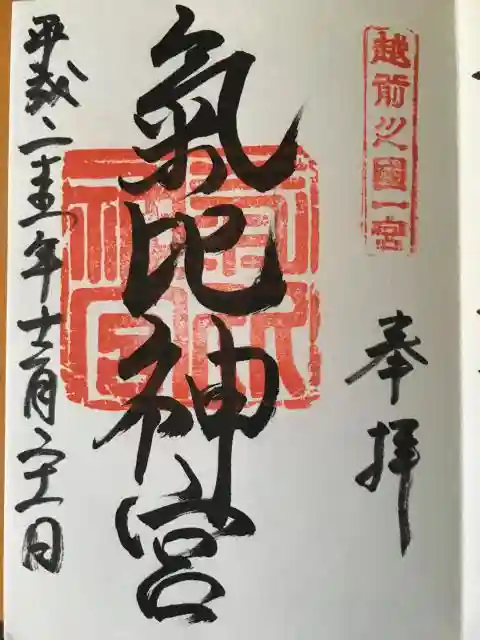 越前之國一宮
奉拝
氣比神宮
氣比
神宮
平成二十五年十二月二十一日